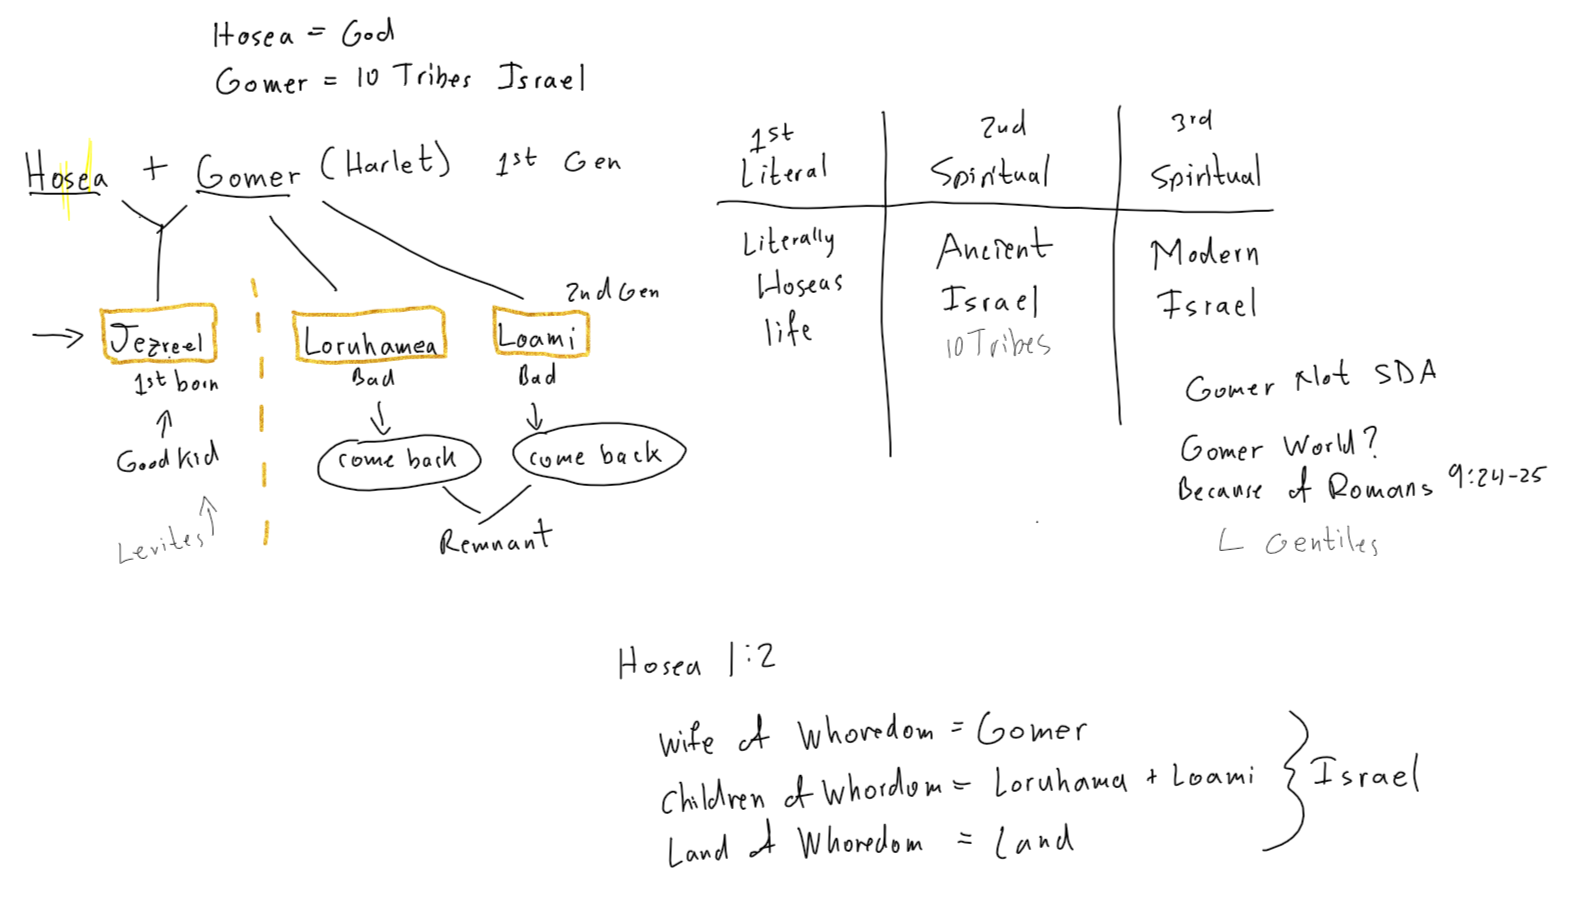 Hosea = God
Gomer = 10 Tribes Israel
Hosea + Gomer (Harlet) 1st Gen
2nd Gen
Jezreel
Loruhamea
Loami
1st born
Bad
Bad
Good kid
come back
come back
Levites
Remnant
1st
Literal
2nd
Spiritual
3rd
Spiritual
Literally
Hoseas
life
Ancient
Israel
10 Tribes
Modern
Israel
Gomer Not SDA
Gomer World?
Because of Romans 9:24-25
Gentiles
Hosea 1:2
Wife of Whoredom = Gomer
Children of Whordom = Loruhama + Loami
Land of Whoredom = Land
Israel